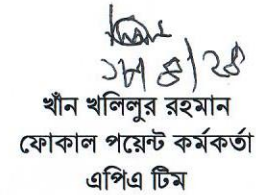 খাঁন খলিলুর রহমান
ফোকাল পয়েন্ট কর্মকর্তা
এপিএ টিম